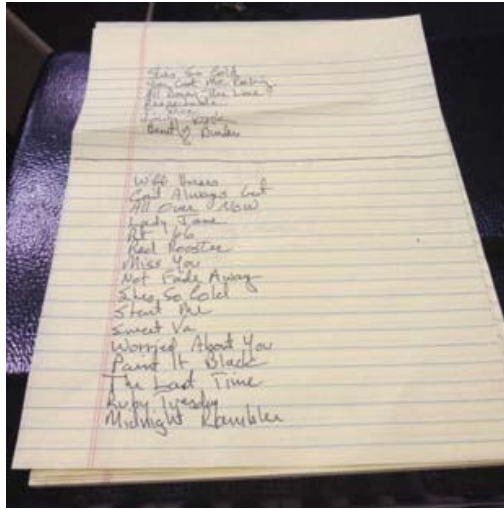 Shes So Cold
You Got Me Rocking
All Down The Line
Respectable
Beast of Burden
Wild Horses
Cant Always Get
All Over Now
Lady Jane
Rt 66
Red Rooster
Miss You
Not Fade Away
Shes So Cold
Start Me
Sweet Va
Worried About You
Paint It Black
The Last Time
Ruby Tuesday
Midnight Rambler